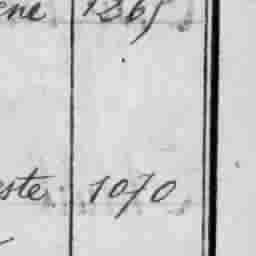 ene 1265
este 1070